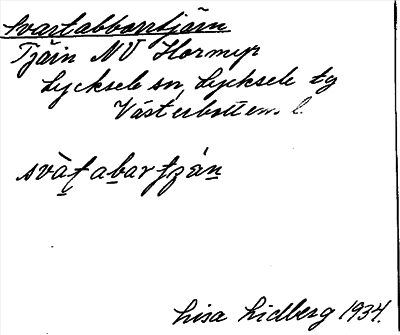 Svartabborrtjärn
Tjärn NV Hormyr
Lycksele sn, Lycksele tg
Västerbottens l.
svàʈabarʈʐán
Lisa Lidberg 1934.